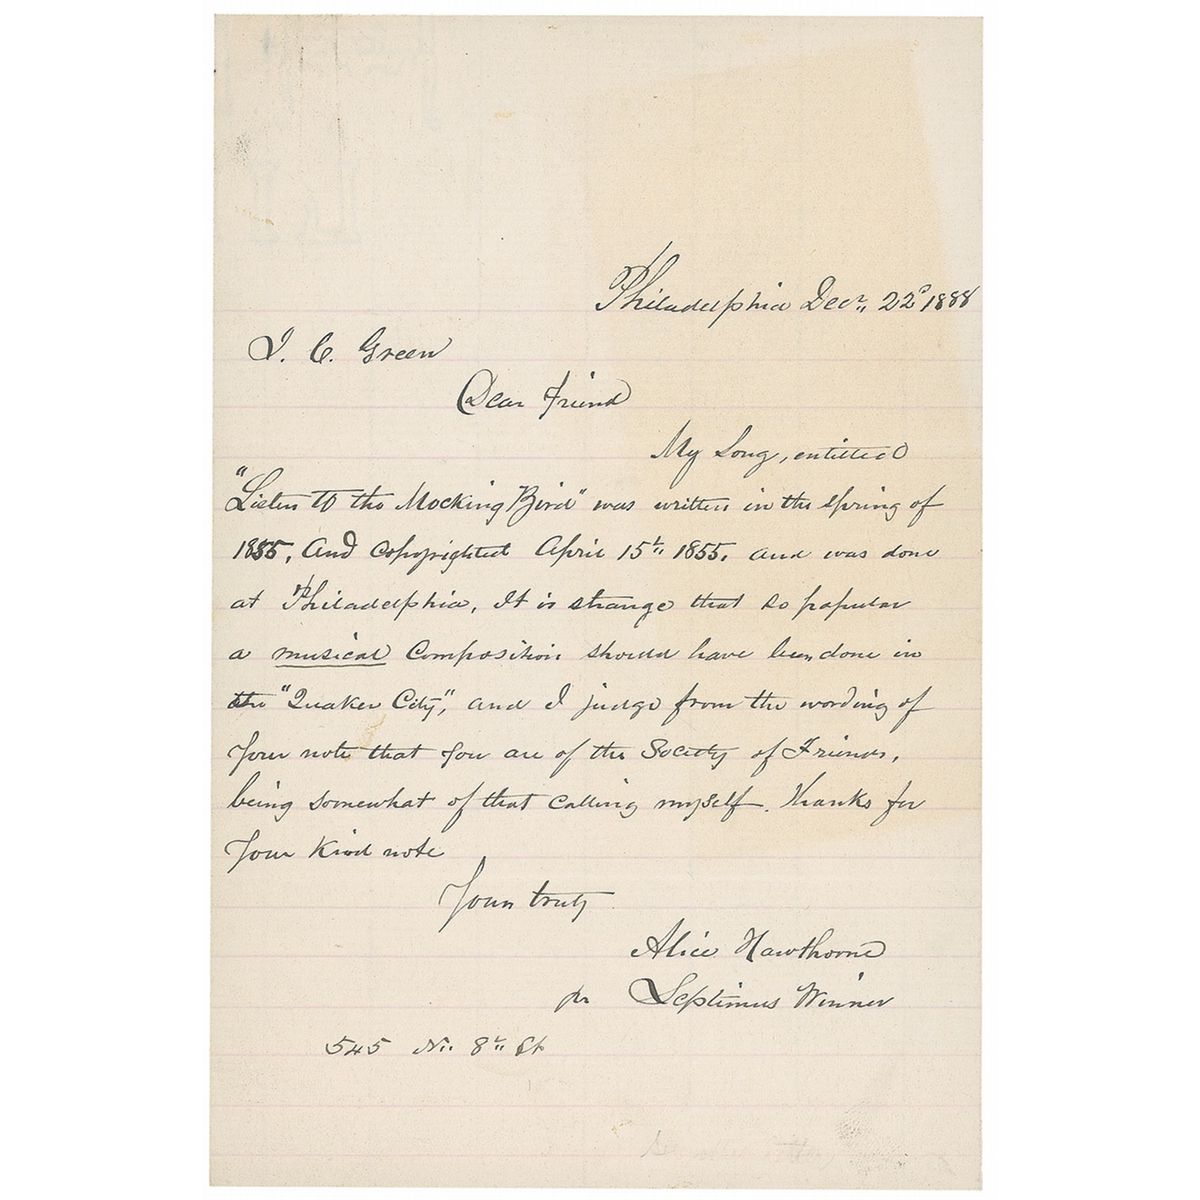 Philadelphia Decr. 22d 1888
J. C. Green
Dear Friend
My Song, entitled
"Listen to the Mocking Bird" was written in the spring of
1855, And Copyrighted April 15th 1855, and was done
at Philadelphia, It is strange that so popular
a musical Composition should have been done in
the "Quaker City", and I judge from the wording of
your note that you are of the Society of Friends,
being somewhat of that calling myself. Thanks for
your kind note
Yours truly
Alice Hawthorne
pr Septimus Winner
545 No. 8th St